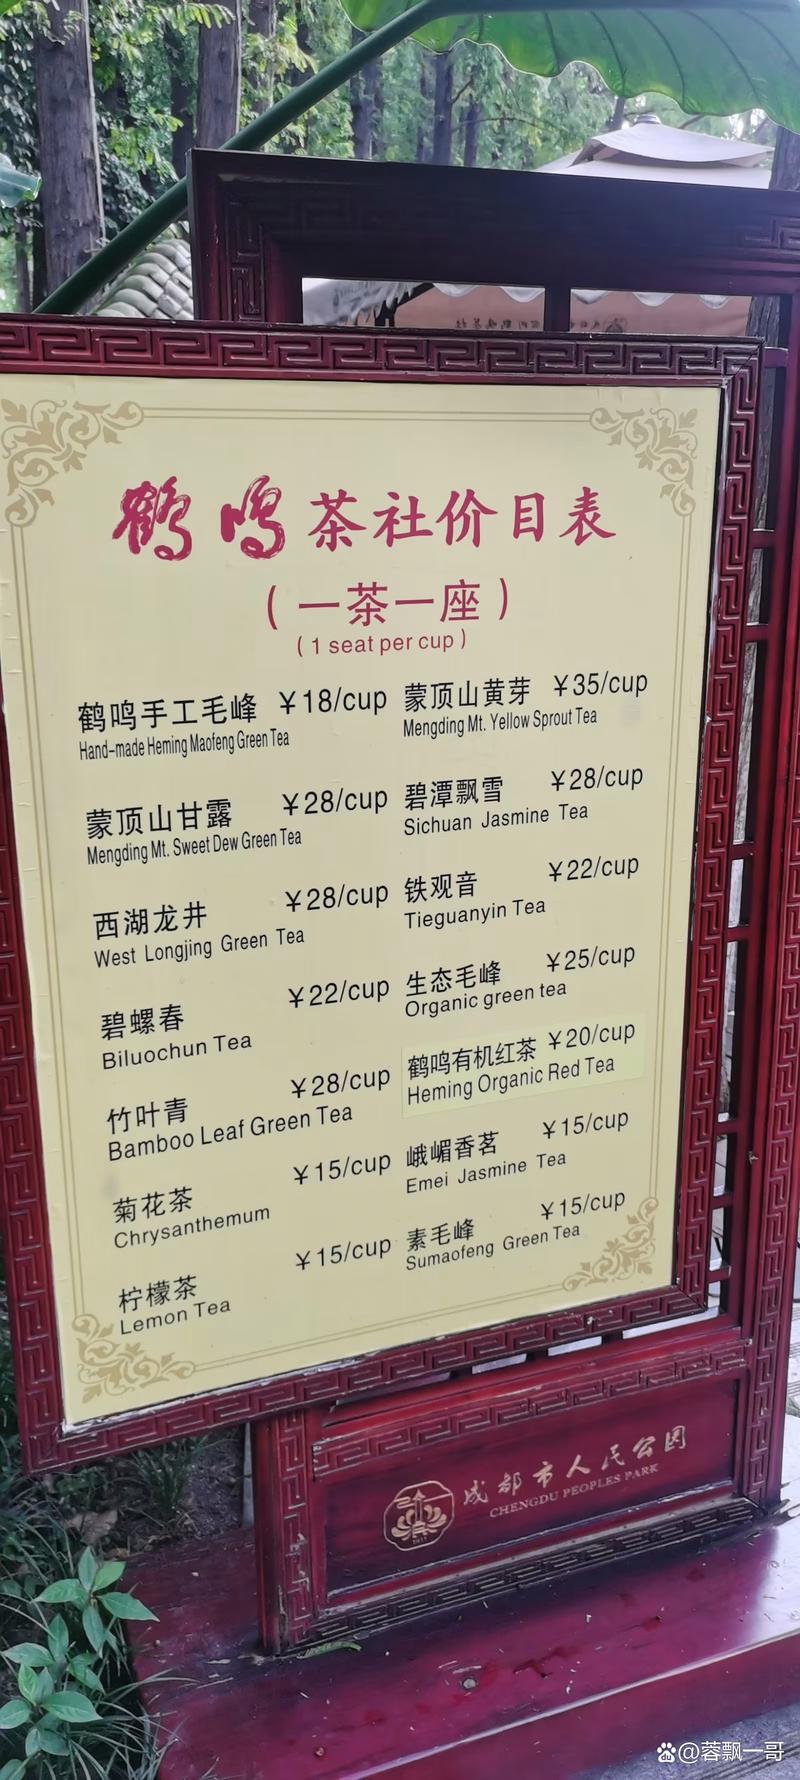 鹤鸣茶社价目表
（一茶一座）
(1 seat per cup)
鹤鸣手工毛峰 ￥18/cup
Hand-made Heming Maofeng Green Tea
蒙顶山甘露 ￥28/cup
Mengding Mt. Sweet Dew Green Tea
西湖龙井 ￥28/cup
West Longjing Green Tea
碧螺春 ￥22/cup
Biluochun Tea
竹叶青 ￥28/cup
Bamboo Leaf Green Tea
菊花茶 ￥15/cup
Chrysanthemum
柠檬茶 ￥15/cup
Lemon Tea
蒙顶山黄芽 ￥35/cup
Mengding Mt. Yellow Sprout Tea
碧潭飘雪 ￥28/cup
Sichuan Jasmine Tea
铁观音 ￥22/cup
Tieguanyin Tea
生态毛峰 ￥25/cup
Organic green tea
鹤鸣有机红茶 ￥20/cup
Heming Organic Red Tea
峨嵋香茗 ￥15/cup
Emei Jasmine Tea
素毛峰 ￥15/cup
Sumaofeng Green Tea
成都市人民公园
CHENGDU PEOPLES PARK
@蓉飘一哥